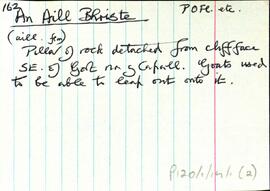 162
An Aill Bhriste POFl. etc.
(aill. fm)
Pillar of rock detached from cliff face
SE. of Gort na gCapall. Goats used
to be able to leap out onto it.
P120/1/14/1 (2)